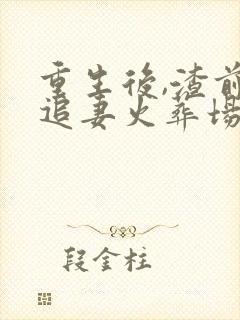 重生後,渣前
追妻火葬場
段金柱